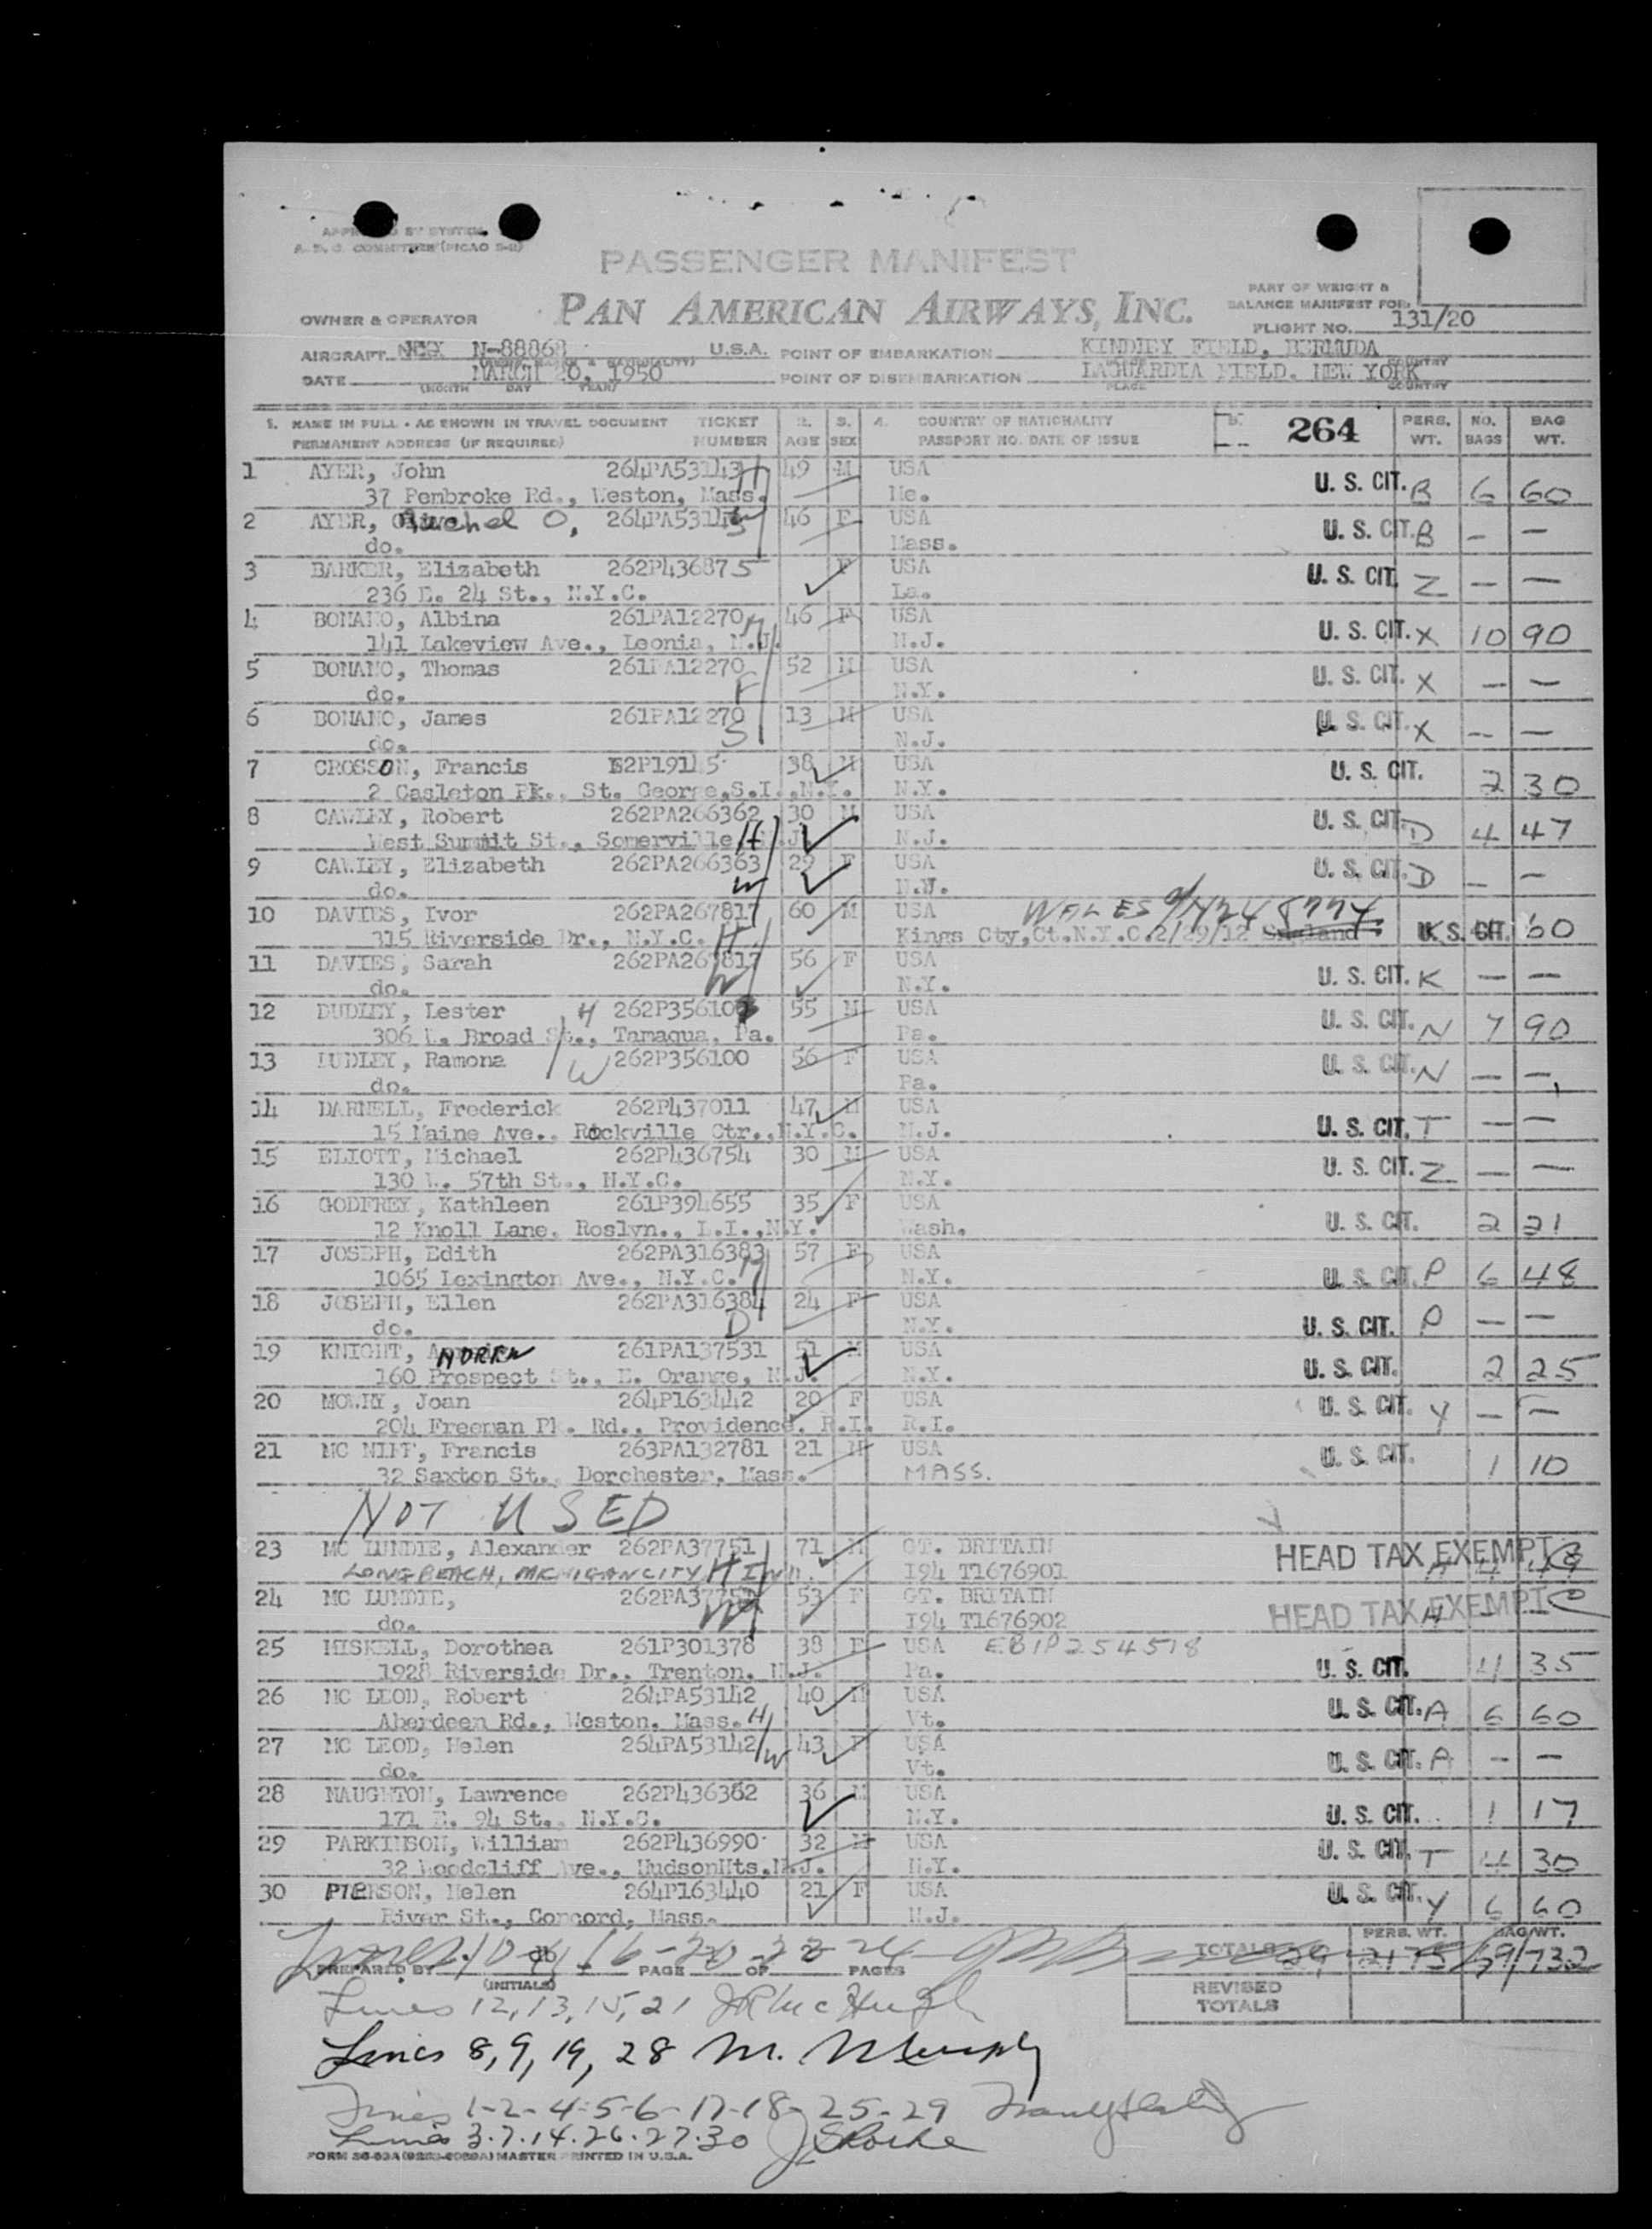 APPROVED BY SYSTEM
A. D. C. COMMITTEE (PICAO S-2)
PASSENGER MANIFEST
PAN AMERICAN AIRWAYS, INC.
PART OF WEIGHT &
BALANCE MANIFEST FOR
OWNER & OPERATOR
FLIGHT NO. 131/20
AIRCRAFT N-88868 U.S.A. POINT OF EMBARKATION KINDLEY FIELD, BERMUDA
DATE MARCH 20, 1950 POINT OF DISEMBARKATION LAGUARDIA FIELD. NEW YORK
(MONTH DAY YEAR) PLACE COUNTRY
1. NAME IN FULL - AS SHOWN IN TRAVEL DOCUMENT TICKET 2. 3. 4. COUNTRY OF NATIONALITY 5. 264 PERS. NO. BAG
PERMANENT ADDRESS (IF REQUIRED) NUMBER AGE SEX PASSPORT NO. DATE OF ISSUE WT. BAGS WT.
1 AYER, John 264PA53143 H 49 M USA
37 Pembroke Rd., Weston, Mass. Me. U. S. CIT. B 6 60
2 AYER, Rachel O, 264PA5314 W 46 F USA
do. Mass. U. S. CIT. B - -
3 BARKER, Elizabeth 262P436875 F USA
236 E. 24 St., N.Y.C. La. U. S. CIT. Z - -
4 BONANO, Albina 261PA12270 46 F USA
141 Lakeview Ave., Leonia, N.J. N.J. U. S. CIT. X 10 90
5 BONANO, Thomas 261PA12270 52 M USA
do. F N.Y. U. S. CIT. X - -
6 BONANO, James 261PA12270 13 M USA
do. S N.J. U. S. CIT. X - -
7 CROSSON, Francis 38 M USA
2 Casleton Pk., St. George, S.I., N.Y. N.Y. U. S. CIT. 2 30
8 CAWLEY, Robert 262PA266362 30 M USA
West Summit St., Somerville H N.J. U. S. CIT. D 4 47
9 CAWLEY, Elizabeth 262PA266363 29 F USA
do. W U. S. CIT. D - -
10 DAVIES, Ivor 262PA267817 60 M USA WALES
315 Riverside Dr., N.Y.C. H Kings Cty,Ct.N.Y.C.2/29/12 England U. S. CIT. 60
11 DAVIES, Sarah 262PA267817 56 F USA
do. W N.Y. U. S. CIT. K - -
12 DUDLEY, Lester H 262P356100 55 M USA
306 W. Broad St., Tamaqua, Pa. Pa. U. S. CIT. N 7 90
13 DUDLEY, Ramona W 262P356100 56 F USA
do. Pa. U. S. CIT. N - -
14 DARNELL, Frederick 262P437011 47 M USA
15 Maine Ave., Rockville Ctr., N.Y.C. N.J. U. S. CIT. T - -
15 ELIOTT, Michael 262P436754 30 M USA
130 W. 57th St., N.Y.C. N.Y. U. S. CIT. Z - -
16 GODFREY, Kathleen 261P394655 35 F USA
12 Knoll Lane, Roslyn., L.I., N.Y. Wash. U. S. CIT. 2 21
17 JOSEPH, Edith 262PA316383 57 F USA
1065 Lexington Ave., N.Y.C. M N.Y. U. S. CIT. P 6 48
18 JOSEPH, Ellen 262PA316384 24 F USA
do. D N.Y. U. S. CIT. P - -
19 KNIGHT, 261PA137531 51 M USA
160 Prospect St., E. Orange, N.J. N.Y. U. S. CIT. 2 25
20 MOWRY, Joan 264P163442 20 F USA
204 Freeman Pk. Rd., Providence, R.I. R.I. U. S. CIT. Y - -
21 MC NIFF, Francis 263PA132781 21 M USA
32 Saxton St., Dorchester, Mass. MASS. U. S. CIT. 1 10
NOT USED
23 MC LUNDIE, Alexander 262PA37751 71 M GT. BRITAIN
LONG BEACH, MICHIGAN CITY, IND. H I94 T1676901 HEAD TAX EXEMPT
24 MC LUNDIE, 262PA3775 53 F GT. BRITAIN
do. W I94 T1676902 HEAD TAX EXEMPT
25 MISKELL, Dorothea 261P301378 38 F USA EBIP254518
1928 Riverside Dr., Trenton, N.J. Pa. U. S. CIT. 4 35
26 MC LEOD, Robert 264PA53142 40 M USA
Aberdeen Rd., Weston, Mass. H Vt. U. S. CIT. A 6 60
27 MC LEOD, Helen 264PA53142 W 43 F USA
do. Vt. U. S. CIT. A - -
28 NAUGHTON, Lawrence 262P436362 36 M USA
171 E. 94 St., N.Y.C. N.Y. U. S. CIT. 1 17
29 PARKINSON, William 262P436990 32 M USA
32 Woodcliff Ave., HudsonHts, N.J. N.Y. U. S. CIT. T 4 30
30 PIERSON, Helen 264P163440 21 F USA
River St., Concord, Mass. N.J. U. S. CIT. Y 6 60
PERS. WT. BAG WT.
Lines 10 11 16-20-23-24 TOTALS 29 2175 69/732
PREPARED BY (INITIALS) PAGE OF PAGES
REVISED TOTALS
Lines 12, 13, 15, 21 JR McHugh
Lines 8, 9, 19, 28 M. Murphy
Lines 1-2-4-5-6-17-18-25-29
Lines 3.7.14.26.27.30
MASTER PRINTED IN U.S.A.